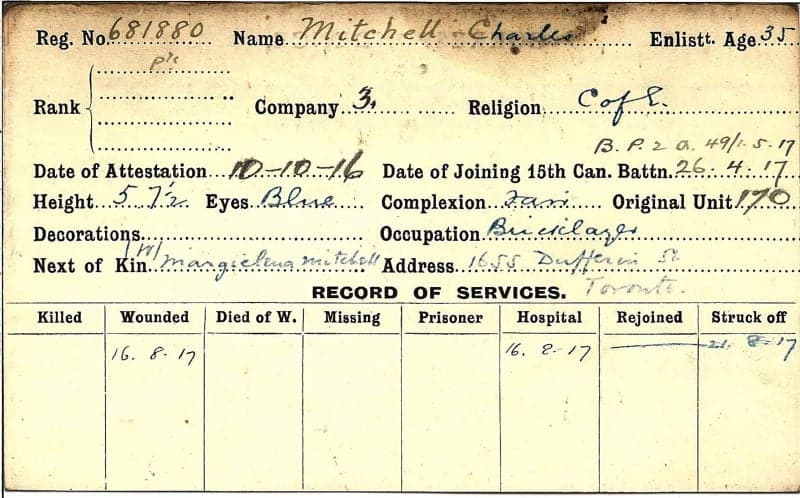 Reg. No. 681880 Name Mitchell Charles Enlistt. Age 35
Pte
Rank Company 3. Religion C of E.
B. P. 2 O. 49/1.5.17
Date of Attestation 10-10-16 Date of Joining 15th Can. Battn. 26.4.17
Height 5 7½ Eyes Blue Complexion Fair Original Unit 170
Decorations Occupation Bricklayer
Next of Kin (W) Margielena Mitchell Address 1655 Dufferin St
RECORD OF SERVICES. Toronto.
Killed Wounded Died of W. Missing Prisoner Hospital Rejoined Struck off
16.8.17 16.8.17 21.8.17